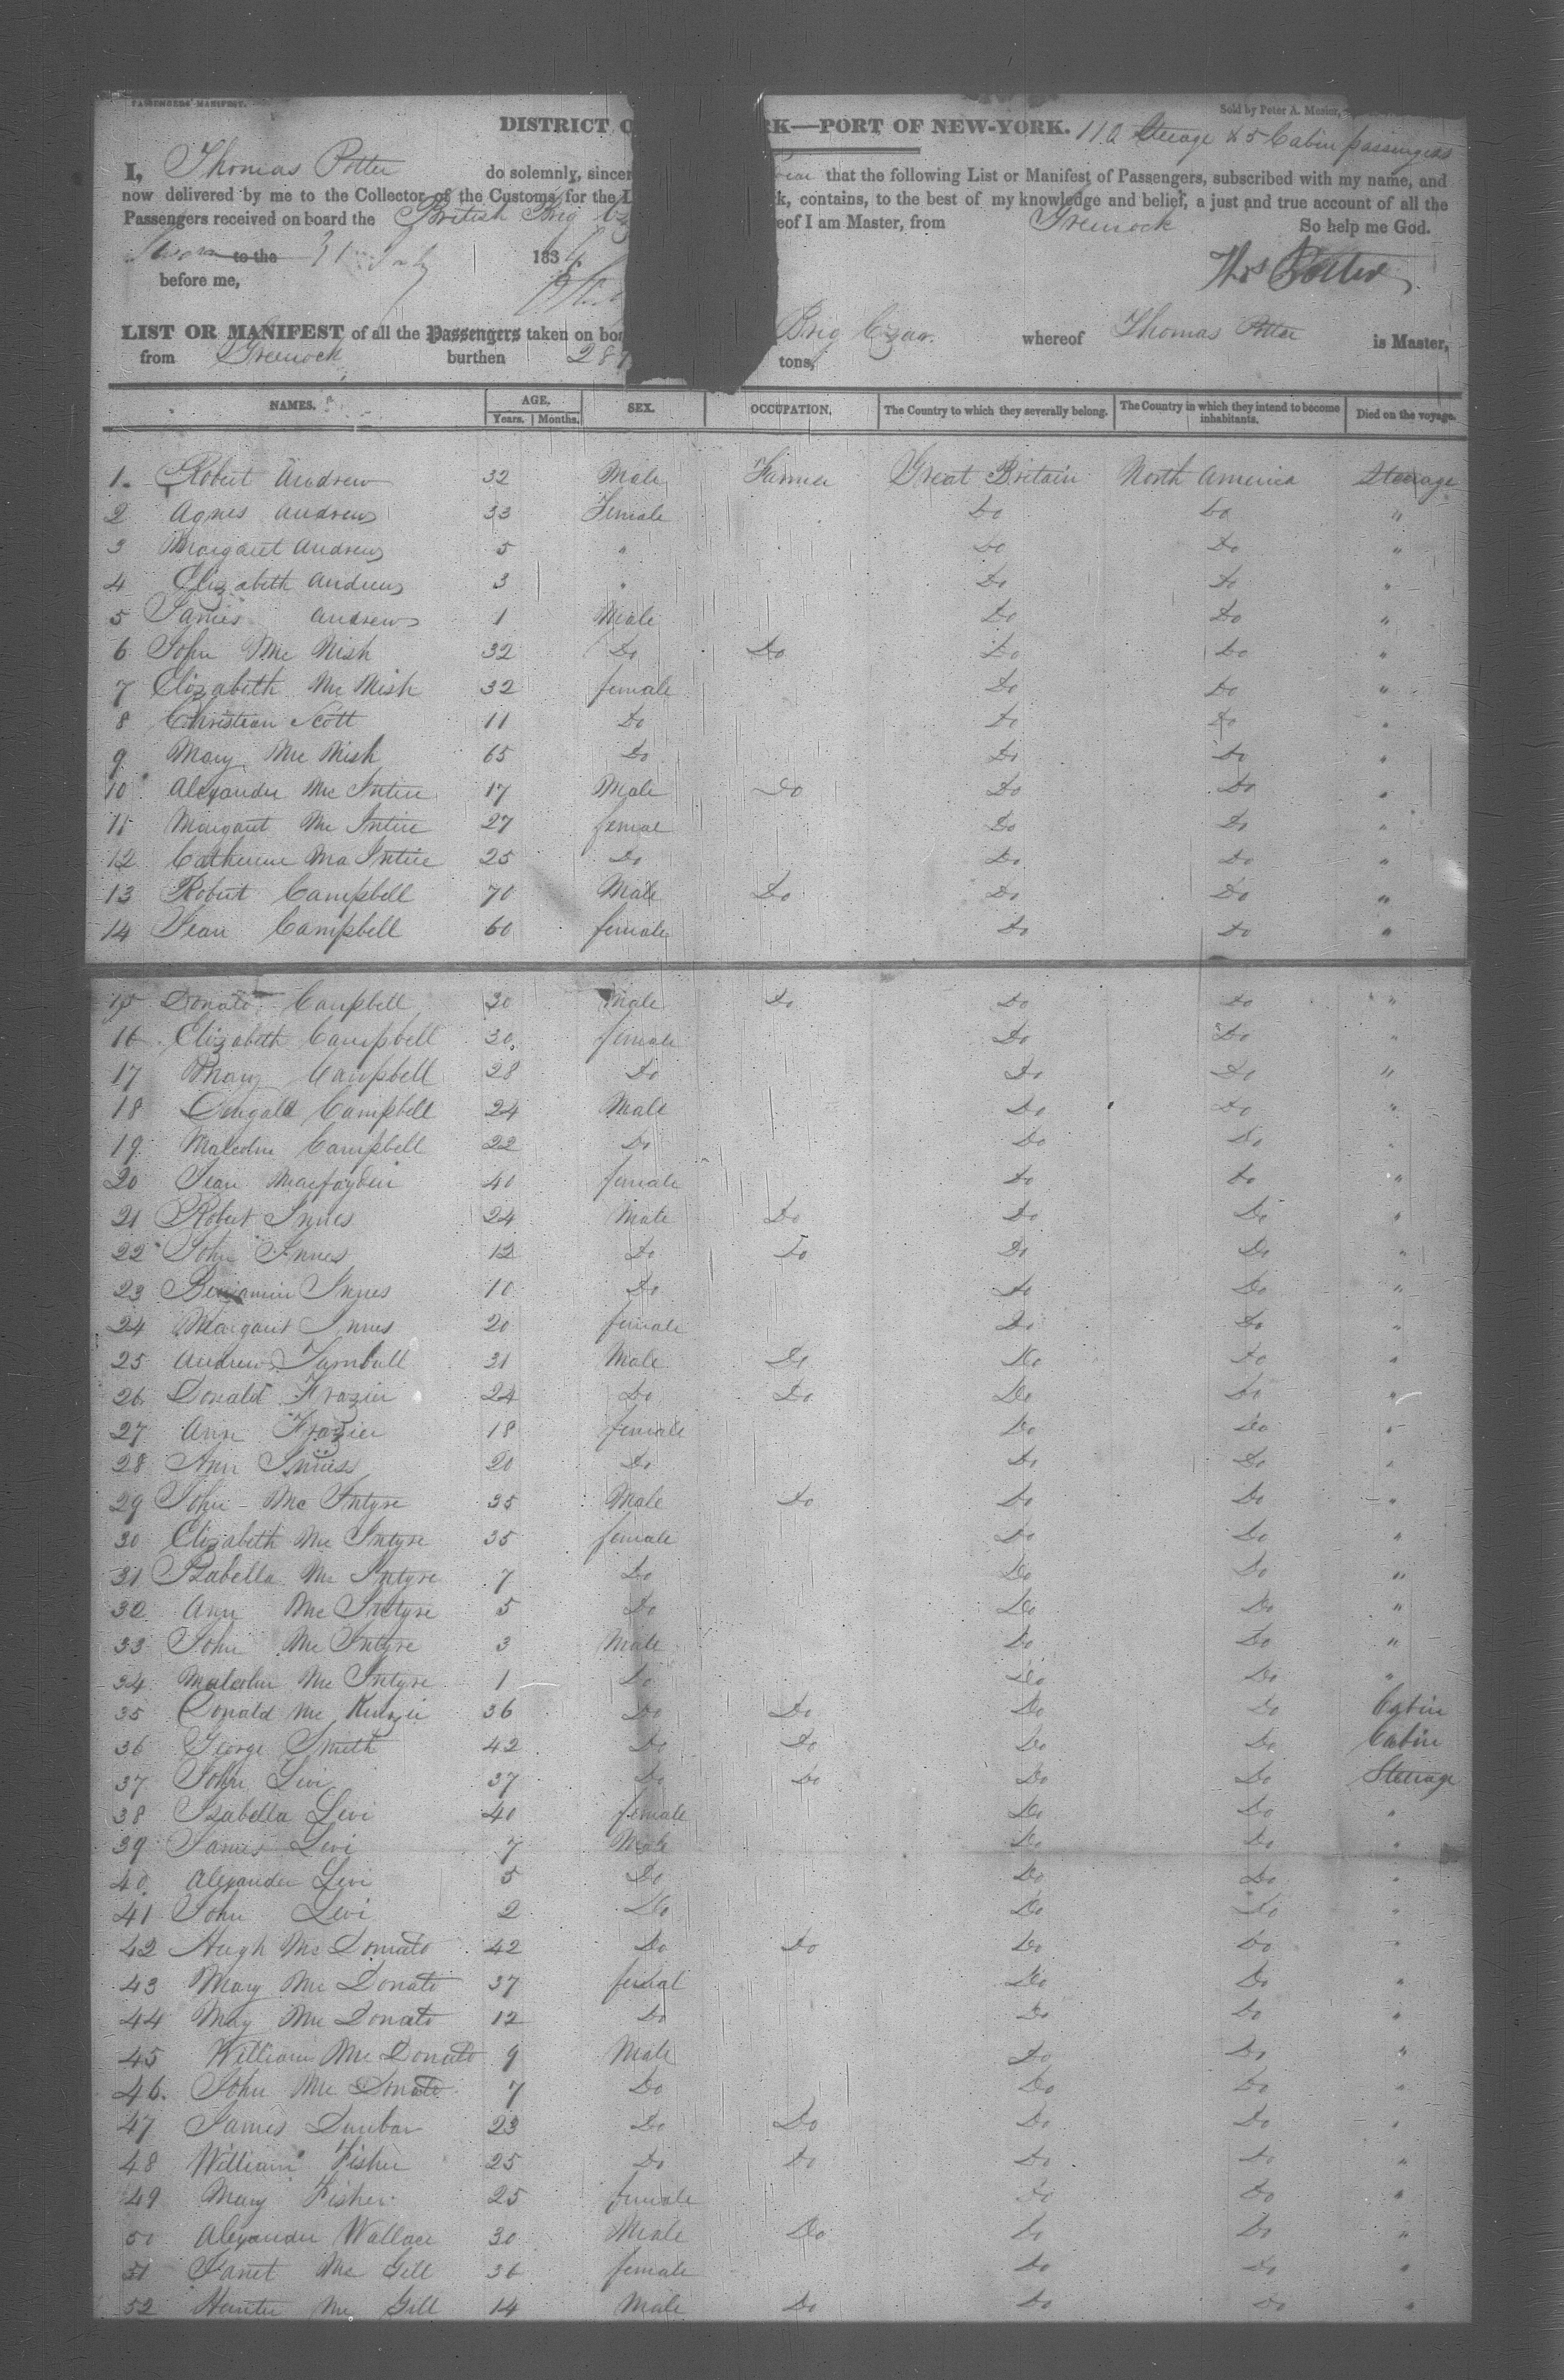 PASSENGERS' MANIFEST.
Sold by Peter A. Mesier,
DISTRICT O RK—PORT OF NEW-YORK. 110 Steerage & 5 Cabin passengers
I, Thomas Potter do solemnly, sincer that the following List or Manifest of Passengers, subscribed with my name, and
now delivered by me to the Collector of the Customs for the D k, contains, to the best of my knowledge and belief, a just and true account of all the
Passengers received on board the British Brig Cz eof I am Master, from Greenock So help me God.
Sworn to the 31 July 1834
Thos Potter
before me,
LIST OR MANIFEST of all the Passengers taken on boa Brig Czar. whereof Thomas Potter is Master,
from Greenock burthen 287 tons,
NAMES. AGE. SEX. OCCUPATION. The Country to which they severally belong. The Country in which they intend to become inhabitants. Died on the voyage.
Years. Months.
1 Robert Andrew 32 Male Farmer Great Britain North America Steerage
2 Agnes Andrews 33 Female Do Do "
3 Margaret Andrews 5 " Do Do "
4 Elizabeth Andrews 3 " Do Do "
5 James Andrews 1 Male Do Do "
6 John Mc Nish 32 Do Do Do Do "
7 Elizabeth Mc Nish 32 female Do Do "
8 Christian Scott 11 Do Do Do "
9 Mary Mc Nish 65 Do Do Do "
10 Alexander Mc Intire 17 Male Do Do Do "
11 Margaret Mc Intire 27 femal Do Do "
12 Catherine Mc Intire 25 Do Do Do "
13 Robert Campbell 70 Male Do Do Do "
14 Jean Campbell 60 female Do Do "
15 Donald Campbell 30 Male Do Do Do "
16 Elizabeth Campbell 30 female Do Do "
17 Mary Campbell 28 Do Do Do "
18 Dugald Campbell 24 Male Do Do "
19 Malcolm Campbell 22 Do Do Do "
20 Jean Macfayden 40 female Do Do "
21 Robert Innes 24 Male Do Do Do "
22 John Innes 12 Do Do Do Do "
23 Benjamin Innes 10 Do Do Do "
24 Margaret Innes 20 female Do Do "
25 Andrew Turnbull 31 Male Do Do Do "
26 Donald Frazier 24 Do Do Do Do "
27 Ann Frazier 18 female Do Do "
28 Ann Inniss 20 Do Do Do "
29 John Mc Intyre 35 Male Do Do Do "
30 Elizabeth Mc Intyre 35 female Do Do "
31 Isabella Mc Intyre 7 Do Do Do "
32 Ann Mc Intyre 5 Do Do Do "
33 John Mc Intyre 3 Male Do Do "
34 Malcolm Mc Intyre 1 Do Do Do "
35 Donald Mc Kenzie 36 Do Do Do Do Cabin
36 George Smith 42 Do Do Do Do Cabin
37 John Levi 37 Do Do Do Do Steerage
38 Isabella Levi 40 female Do Do "
39 James Levi 7 Male Do Do "
40 Alexander Levi 5 Do Do Do "
41 John Levi 2 Do Do Do "
42 Hugh Mc Donald 42 Do Do Do Do "
43 Mary Mc Donald 37 femal Do Do "
44 May Mc Donald 12 Do Do Do "
45 William Mc Donald 9 Male Do Do "
46 John Mc Donald 7 Do Do Do "
47 James Dunbar 23 Do Do Do Do "
48 William Fisher 25 Do Do Do Do "
49 Mary Fisher 25 female Do Do "
50 Alexander Wallace 30 Male Do Do Do "
51 Janet Mc Gill 36 female Do Do "
52 Hunter Mc Gill 14 Male Do Do Do "